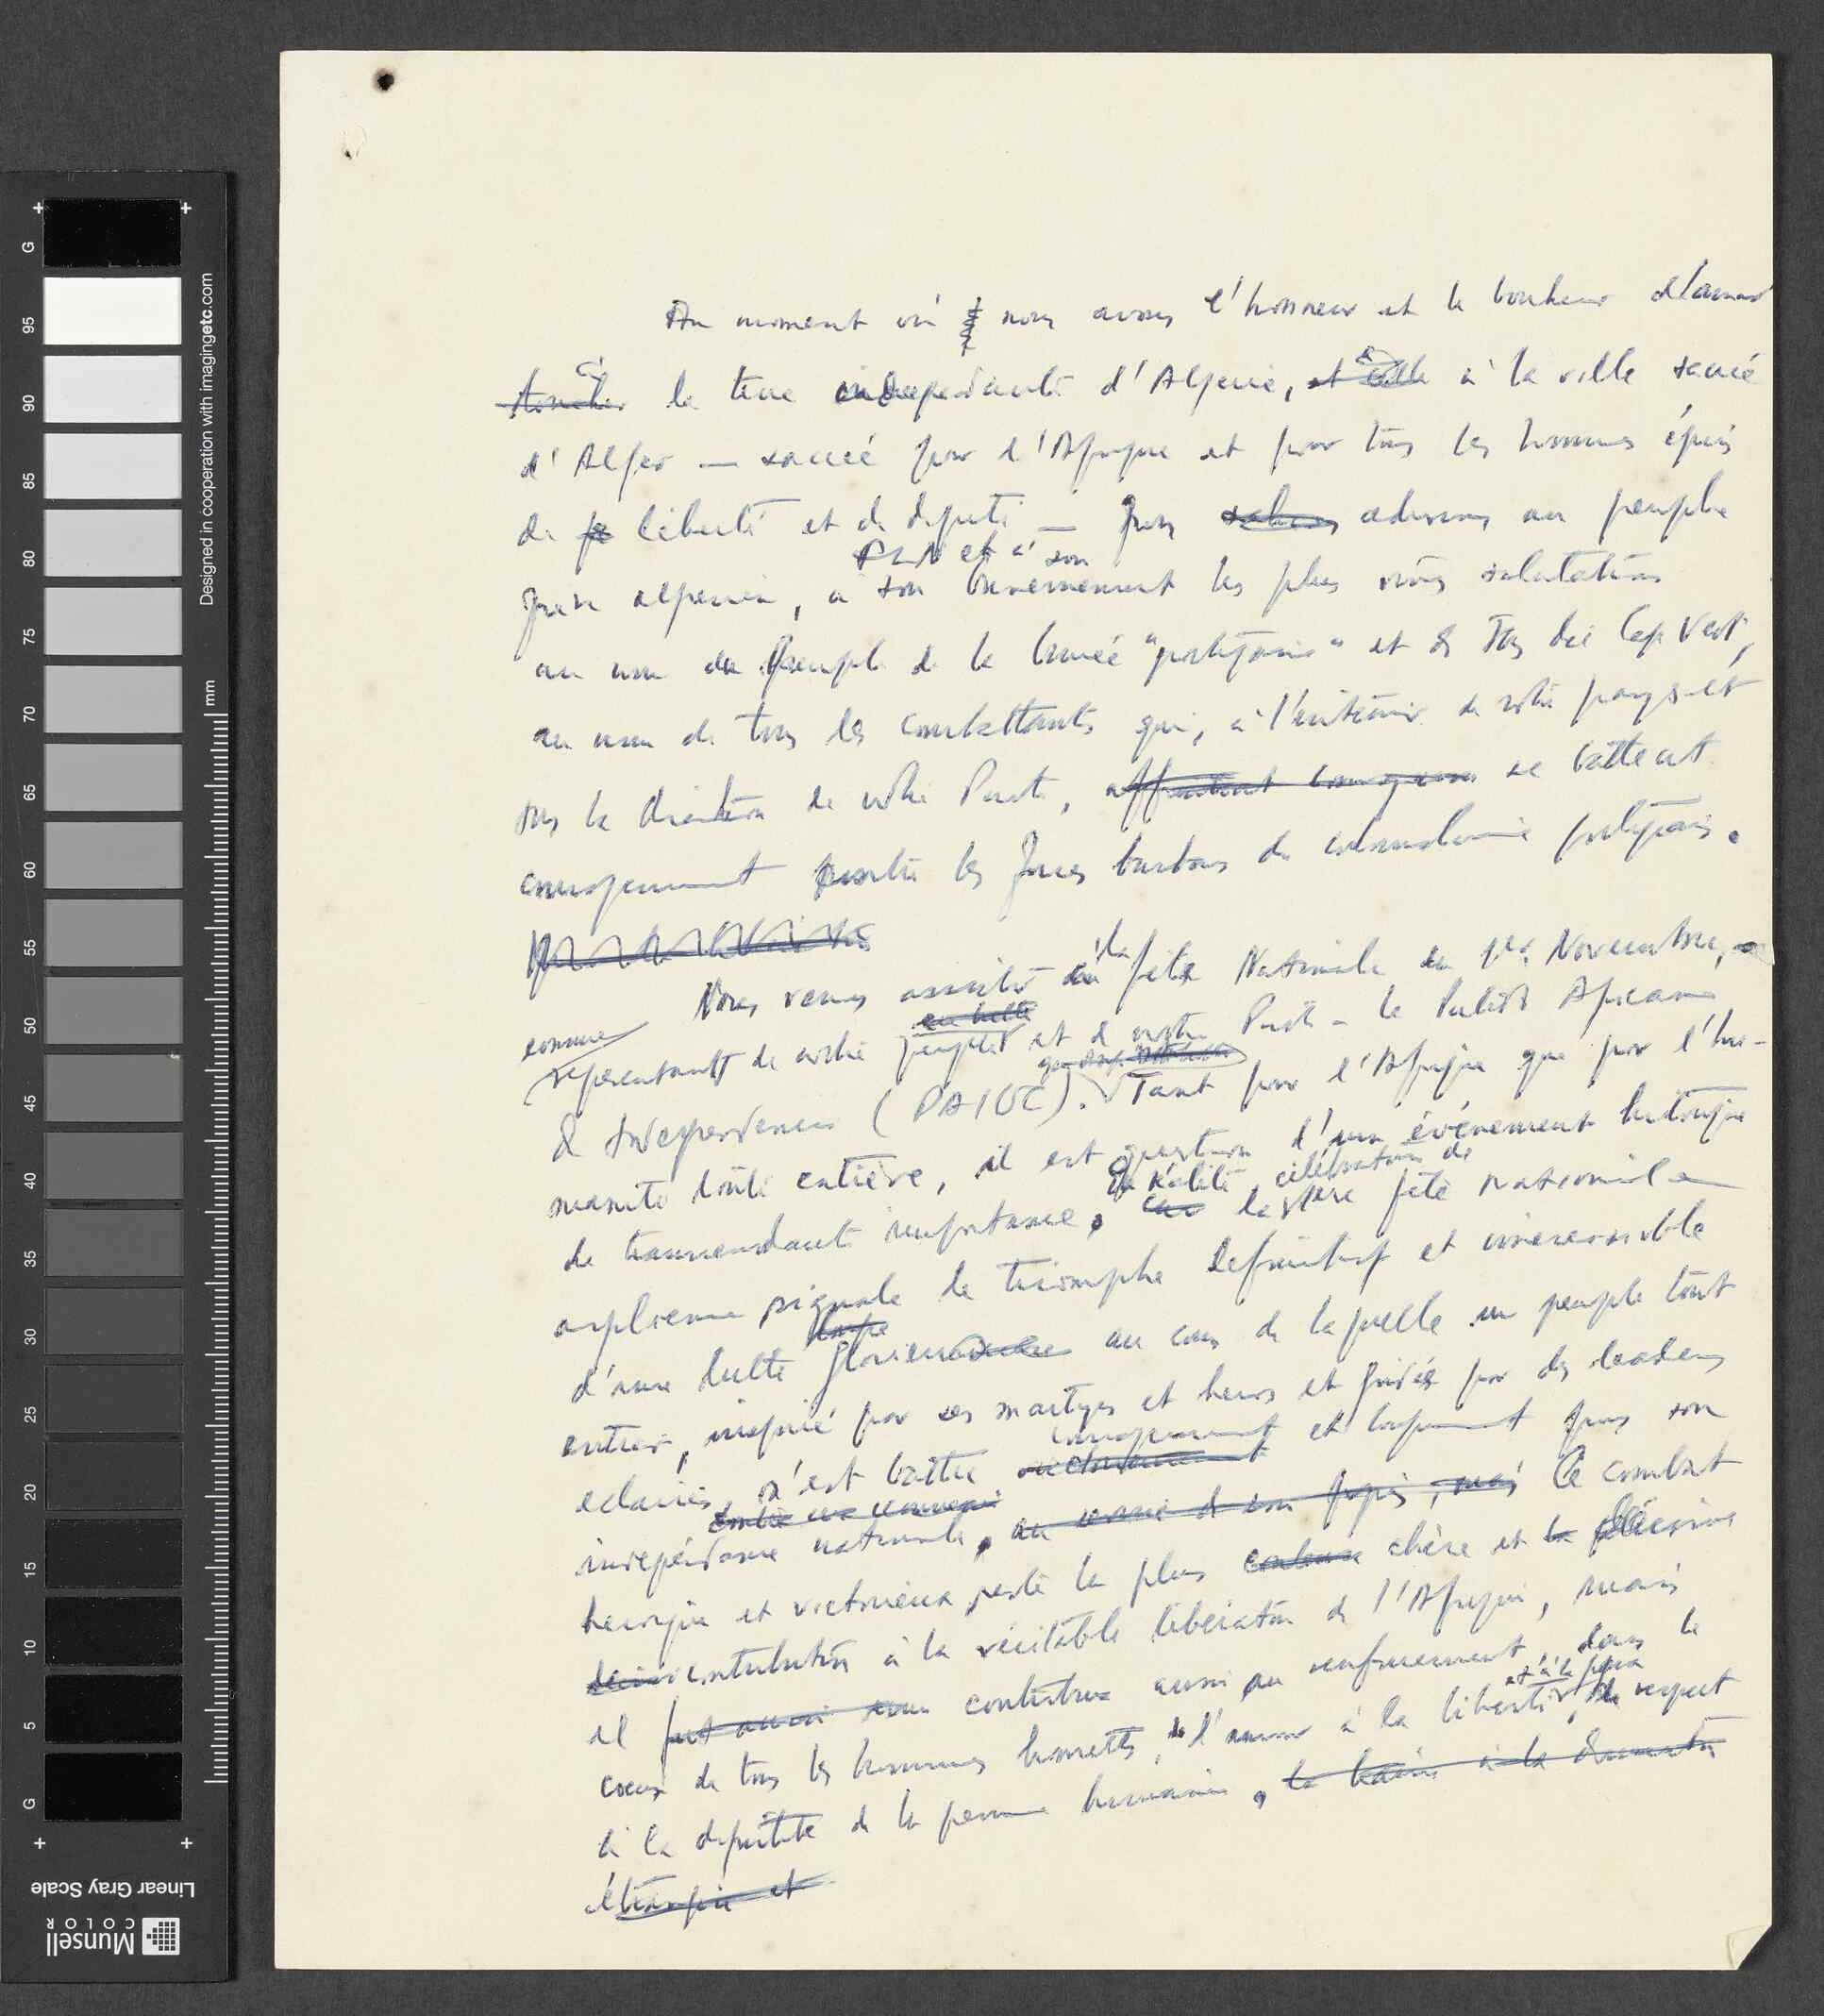 Au moment où nous avons l'honneur et le bonheur d'arriver
toucher à la terre independante d'Algerie, et à la ville sacré
d'Alger — sacrée pour l'Afrique et pour tous les hommes épris
de liberté et de dignité — Nous adressons au peuple
FLN et à son
frère algerien, à son Gouvernement les plus vives salutations
au nom du Peuple de la Guinée "portugaise" et des Iles du Cap Vert,
au nom de tous les combattants qui, à l'intérieur de notre pays et
sous la direction de notre Parti, affrontent se battent
courageusement contre les forces barbares du colonialisme portugais.
Nous venons assister à la fête Nationale du 1er Novembre,
comme
en lutte
representants de notre peuple et de notre Parti - le Parti Africain
de Independence (PAIGC). Tant pour l'Afrique que pour l'hu-
manité toute entière, il est question d'un événement historique
En réalité, célébration de
de transcendante importance, car la 1ère fête nationale
algérienne signale le triomphe definitif et irreversible
longue
d'une lutte glorieuse au cours de laquelle un peuple tout
entier, inspiré par ses martyrs et heros et guidés par des leaders
courageusement
eclairés, s'est battu victorieusement et loyalement pour son
indépendance nationale, au cours de son Ce combat
heroique et victorieux reste la plus couteuse chère et la décisive
contribution à la véritable libération de l'Afrique, mais
il fut aussi une contribue aussi au renforcement, dans le
et à la paix
coeur de tous les hommes honnetes, de l'amour à la liberté, du respect
à la dignité de la personne humaine, la haine à la domination
étrangère et
Munsell
COLOR
Linear Gray Scale
Designed in cooperation with imagingetc.com
mm
G
95
90
85
80
75
70
65
60
55
50
45
40
35
30
25
20
15
10
5
G